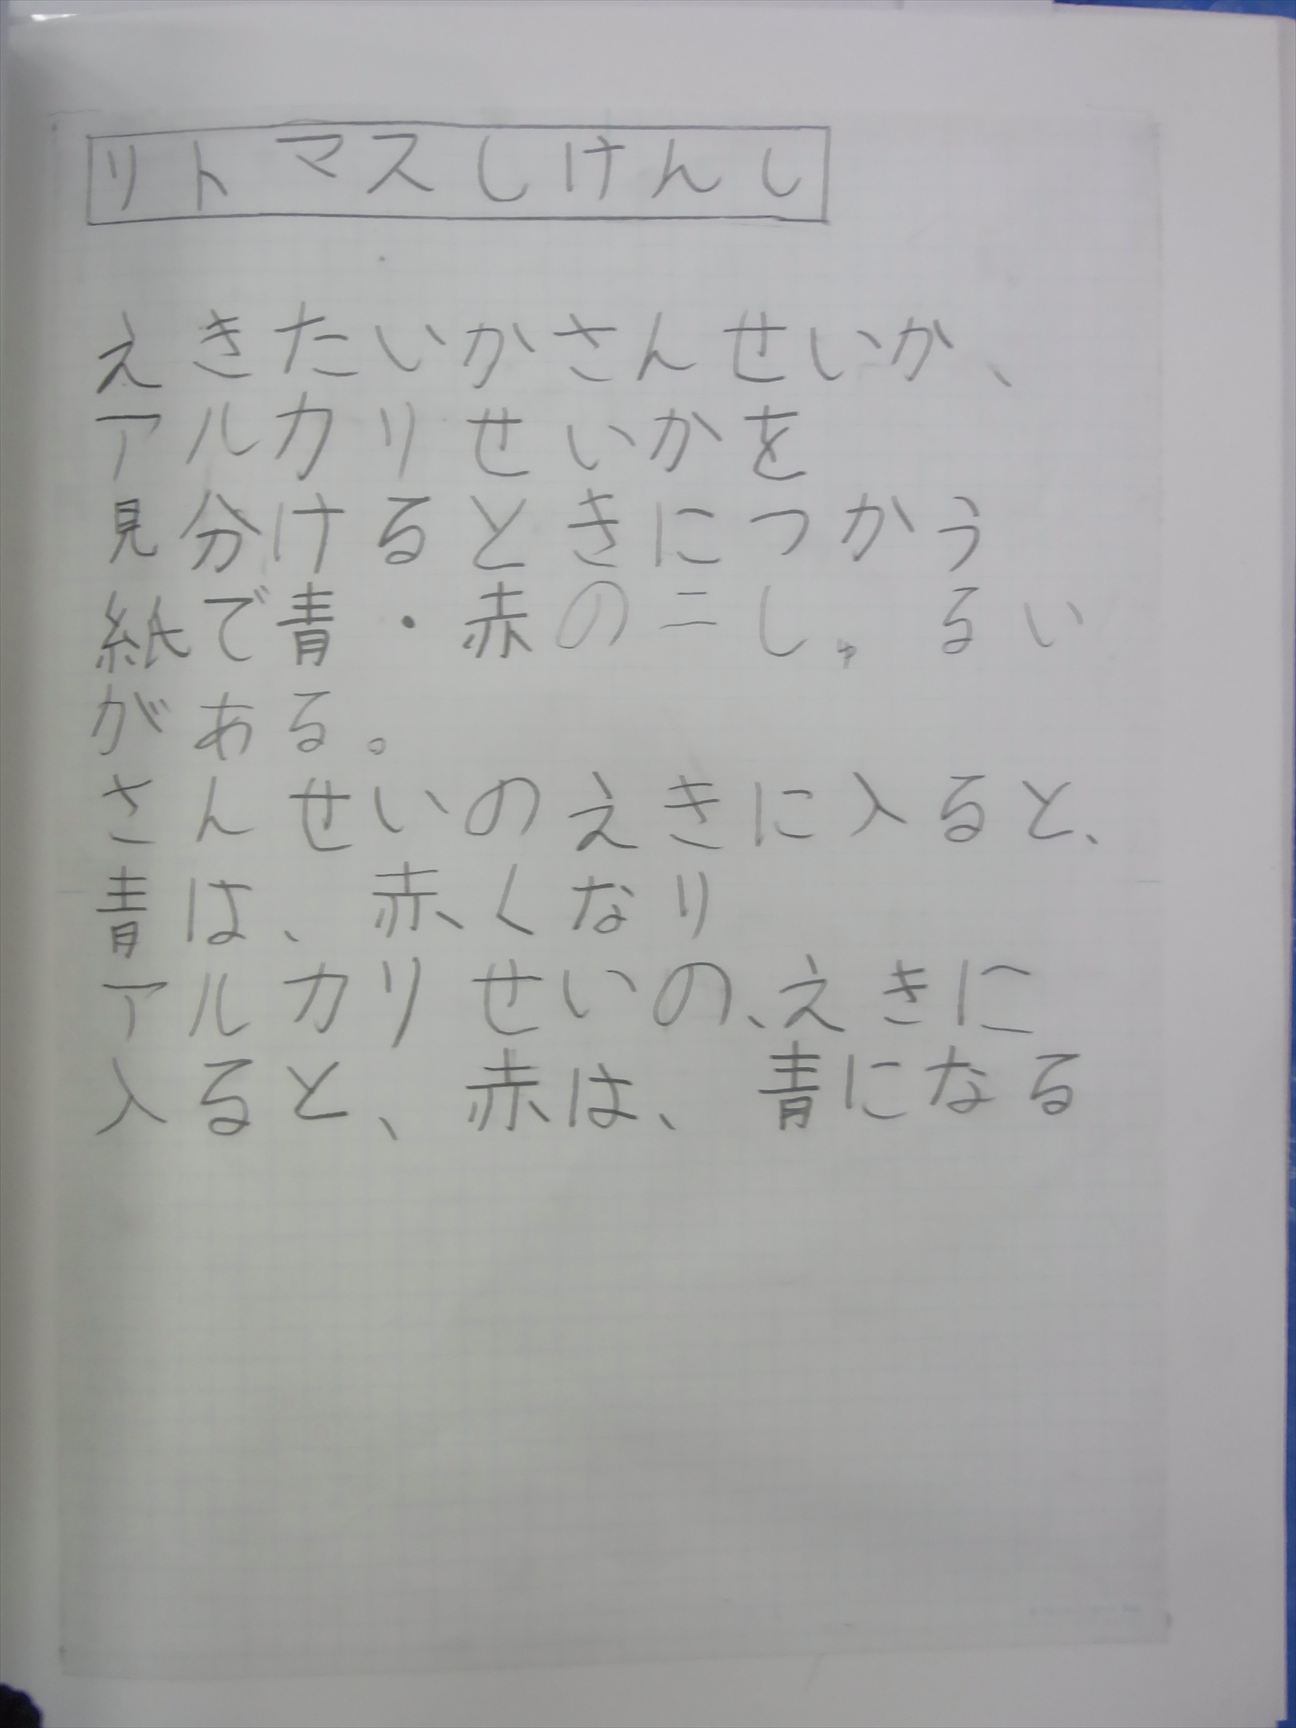 リトマスしけんし
えきたいかさんせいか、
アルカリせいかを
見分けるときにつかう
紙で青・赤の二しゅるい
がある。
さんせいのえきに入ると、
青は、赤くなり
アルカリせいの、えきに
入ると、赤は、青になる